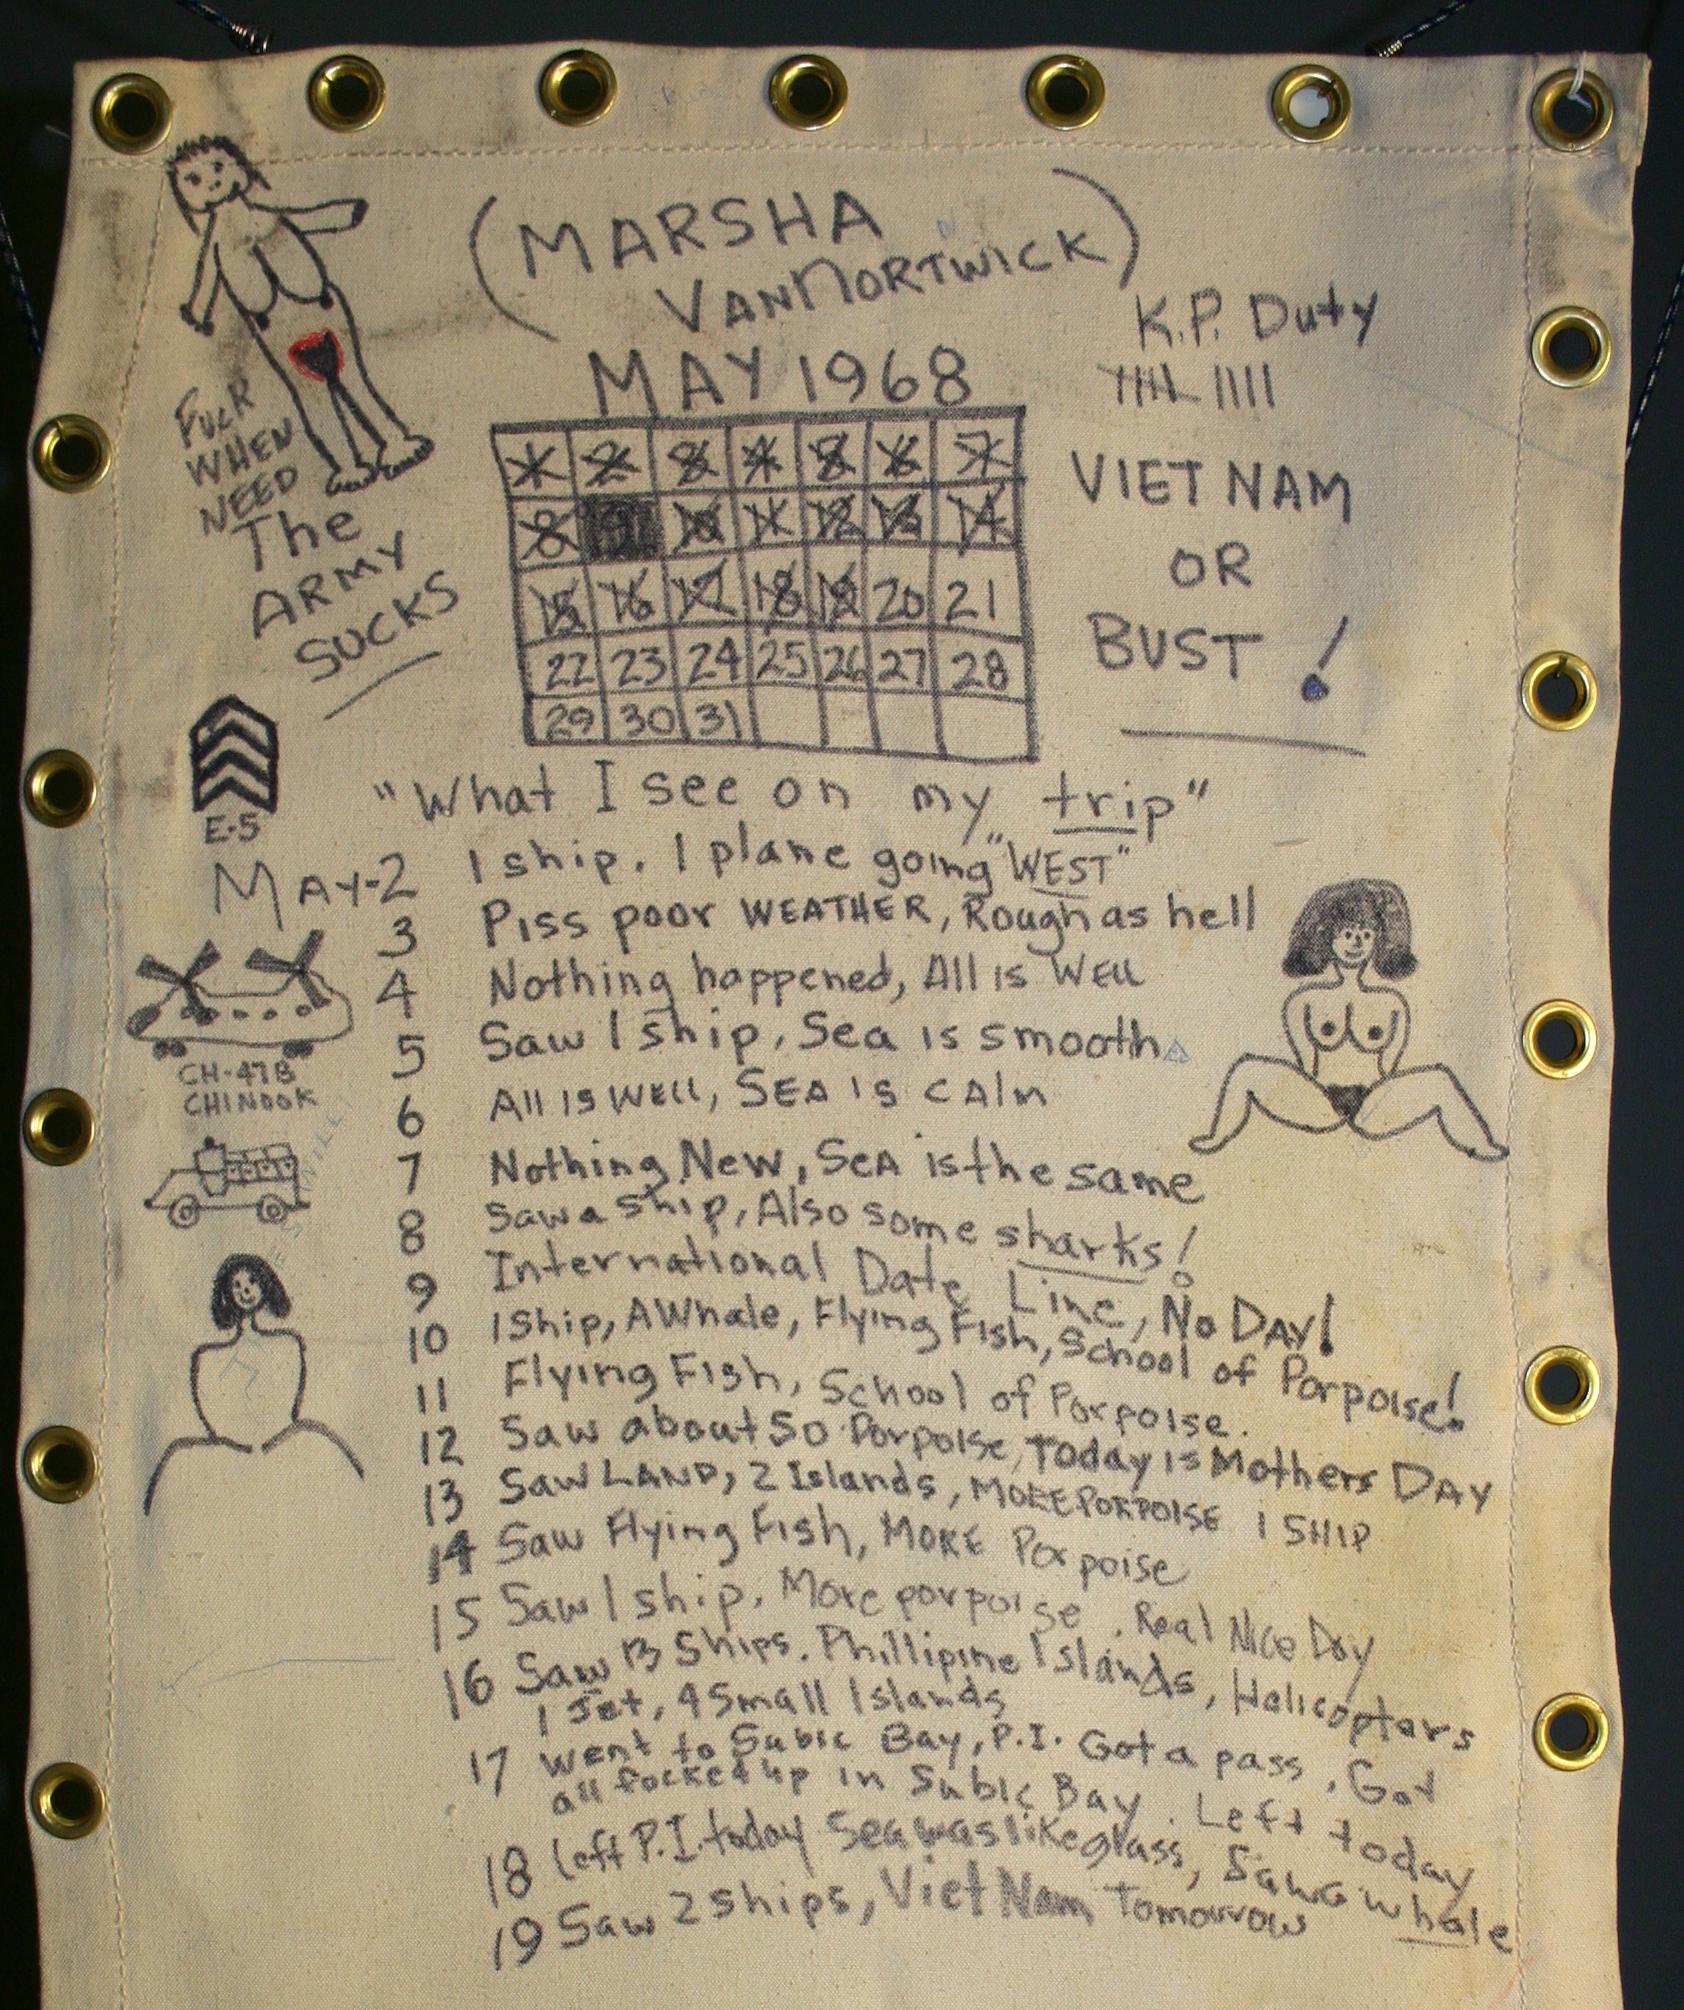 (MARSHA
VANNORTWICK)
MAY 1968
K.P. Duty
VIET NAM
OR
BUST!
FUCK
WHEN
NEED
The
ARMY
SUCKS
1 2 3 4 5 6 7
8 9 10 11 12 13 14
15 16 17 18 19 20 21
22 23 24 25 26 27 28
29 30 31
E-5
CH-47B
CHINOOK
"What I see on my trip"
MAY-2 1 ship. 1 plane going "WEST"
3 Piss poor WEATHER, Rough as hell
4 Nothing happened, All is Well
5 Saw 1 ship, Sea is smooth
6 All is well, SEA is CAlm
7 Nothing New, SeA is the same
8 Saw a ship, Also some sharks!
9 International Date Line, No DAY!
10 1 Ship, A Whale, Flying Fish, School of Porpoise!
11 Flying Fish, School of Porpoise.
12 Saw about 50 Porpoise, Today is Mothers DAY
13 Saw LAND, 2 Islands, MORE PORPOISE 1 SHIP
14 Saw Flying Fish, MORE Porpoise
15 Saw 1 ship, More porpoise. Real Nice Day
16 Saw 13 Ships. Phillipine Islands, Helicopters
1 Jet, 4 Small Islands
17 went to Subic Bay, P.I. Got a pass. Got
all focked up in Subic Bay. Left today
18 left P.I. today Sea was like glass, Saw a whale
19 Saw 2 ships, Viet Nam Tomorrow